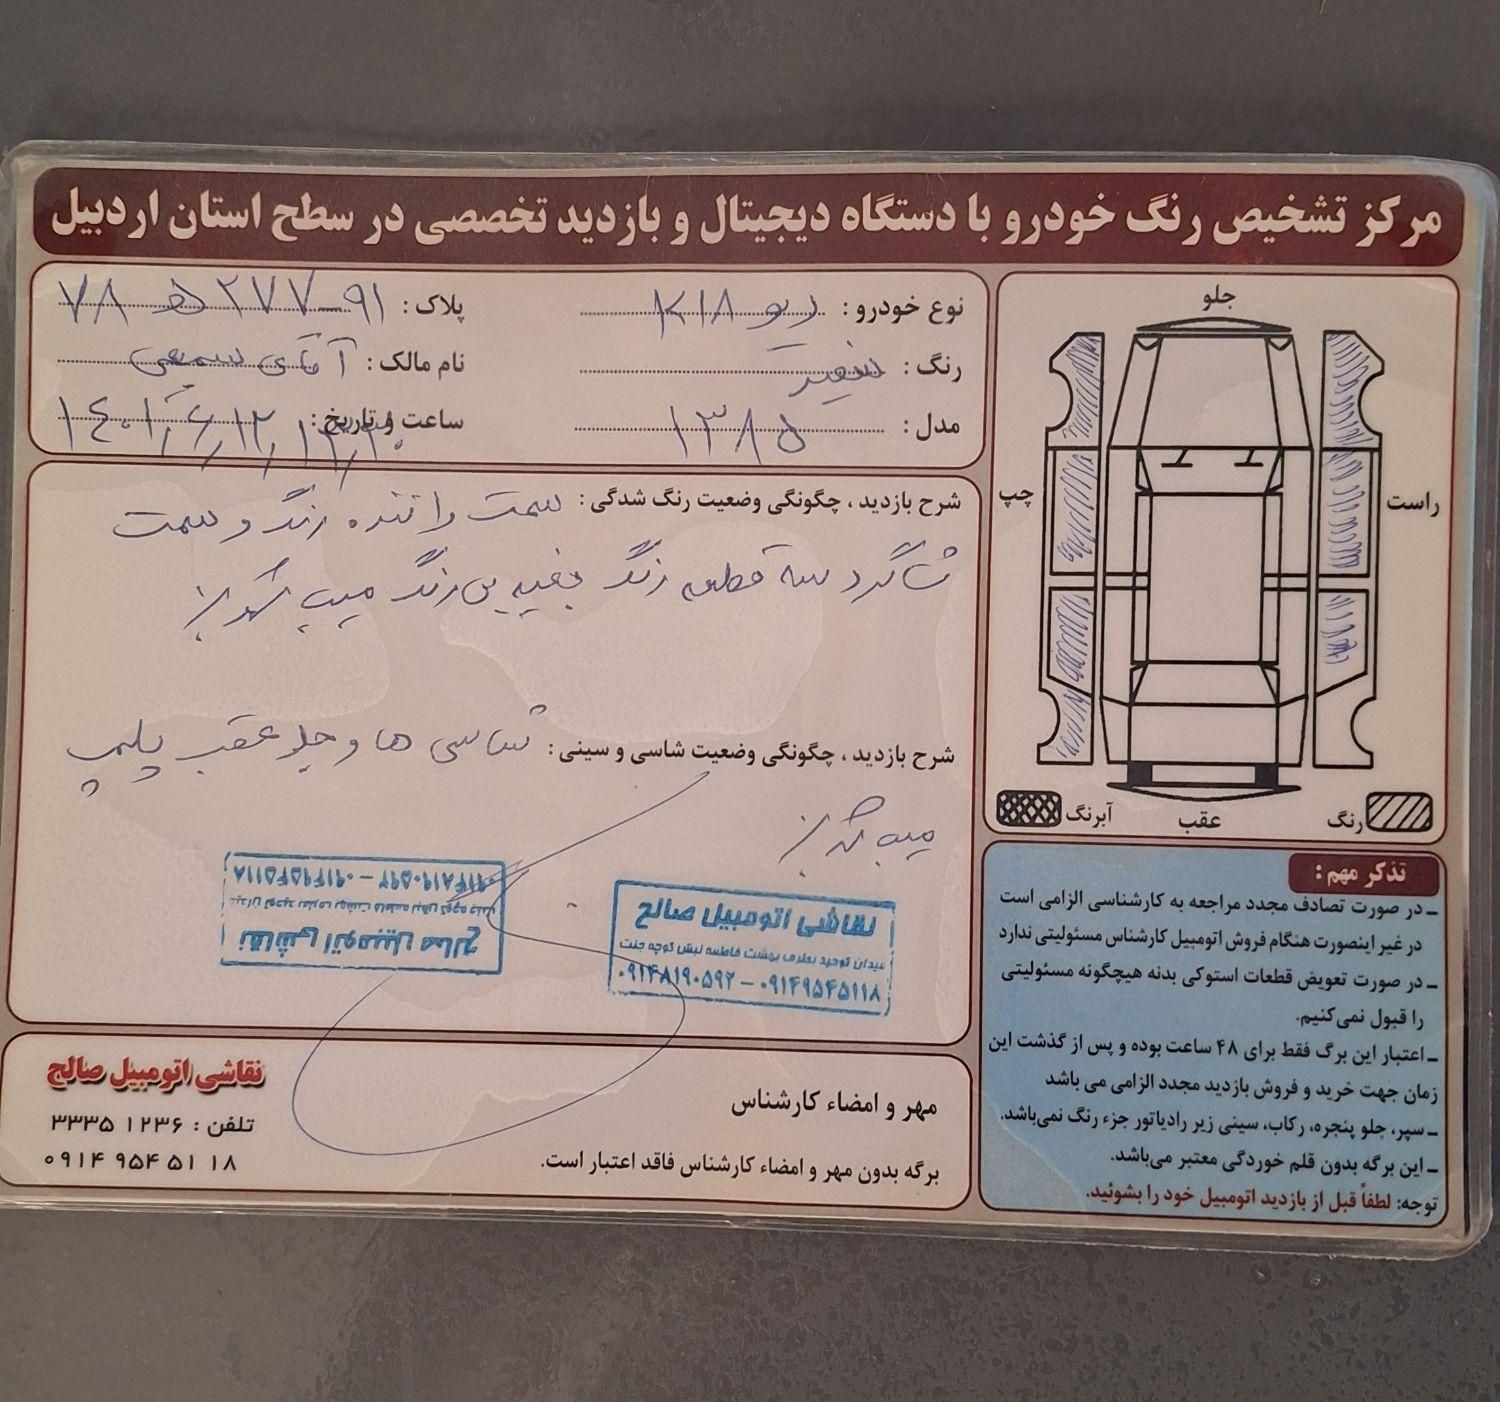 مرکز تشخیص رنگ خودرو با دستگاه دیجیتال و بازدید تخصصی در سطح استان اردبیل
جلو
راست
چپ
عقب
رنگ
آبرنگ
نوع خودرو : ریو
پلاک : ۹۱ - ۲۷۷ ه ۷۸
رنگ : سفید
نام مالک : آقای سمیعی
مدل : ۱۳۸۵
ساعت و تاریخ :
شرح بازدید ، چگونگی وضعیت رنگ شدگی : سمت راننده رنگ و سمت
شاگرد سه قطعه رنگ بقیه بی رنگ میب
شرح بازدید ، چگونگی وضعیت شاسی و سینی : شاسی ها و جلو عقب پلمپ
میب
نقاشی اتومبیل صالح
میدان توحید بطرف بهشت فاطمه نبش کوچه جنت
۰۹۱۴۸۱۹۰۵۹۲ – ۰۹۱۴۹۵۴۵۱۱۸
نقاشی اتومبیل صالح
میدان توحید بطرف بهشت فاطمه نبش کوچه جنت
۰۹۱۴۸۱۹۰۵۹۲ – ۰۹۱۴۹۵۴۵۱۱۸
تذکر مهم :
ـ در صورت تصادف مجدد مراجعه به کارشناسی الزامی است
در غیر اینصورت هنگام فروش اتومبیل کارشناس مسئولیتی ندارد
ـ در صورت تعویض قطعات استوکی بدنه هیچگونه مسئولیتی
را قبول نمی‌کنیم.
ـ اعتبار این برگ فقط برای ۴۸ ساعت بوده و پس از گذشت این
زمان جهت خرید و فروش بازدید مجدد الزامی می باشد
ـ سپر، جلو پنجره، رکاب، سینی زیر رادیاتور جزء رنگ نمی‌باشد.
ـ این برگه بدون قلم خوردگی معتبر می‌باشد.
توجه: لطفاً قبل از بازدید اتومبیل خود را بشوئید.
مهر و امضاء کارشناس
برگه بدون مهر و امضاء کارشناس فاقد اعتبار است.
نقاشی اتومبیل صالح
تلفن : ۳۳۳۵ ۱۲۳۶
۰۹۱۴ ۹۵۴ ۵۱ ۱۸